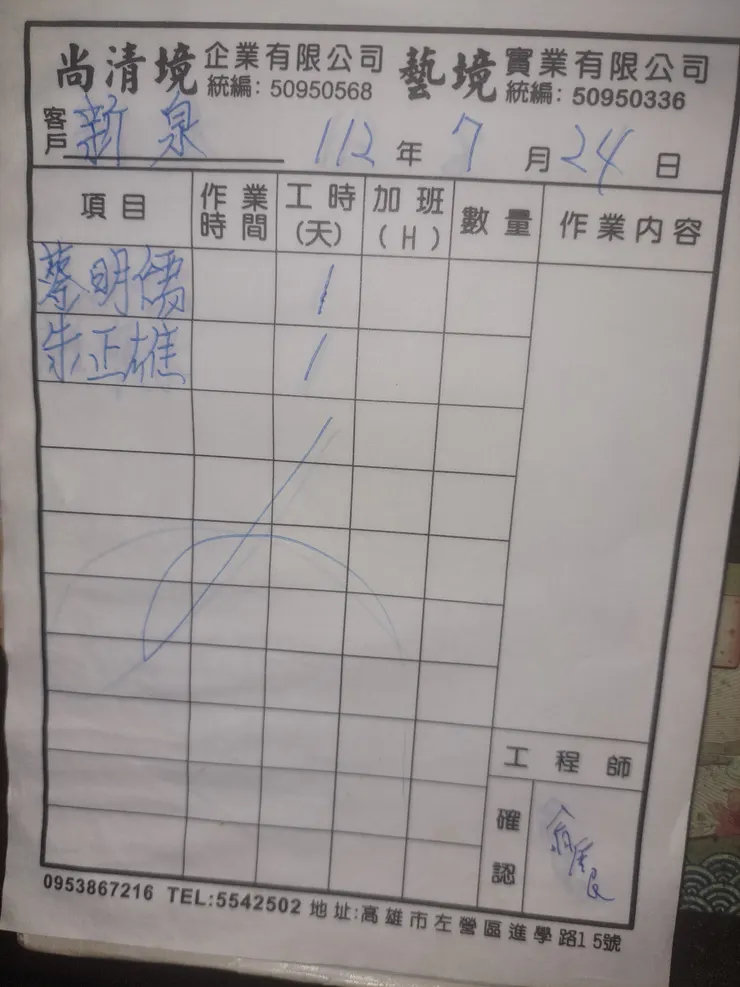 尚清境 企業有限公司 藝境 實業有限公司
統編: 50950568 統編: 50950336
客戶 新泉 112 年 7 月 24 日
項目 作業時間 工時(天) 加班(H) 數量 作業內容
蔡明儒 1
朱正雄 1
工程師
確認
0953867216 TEL:5542502 地址:高雄市左營區進學路15號